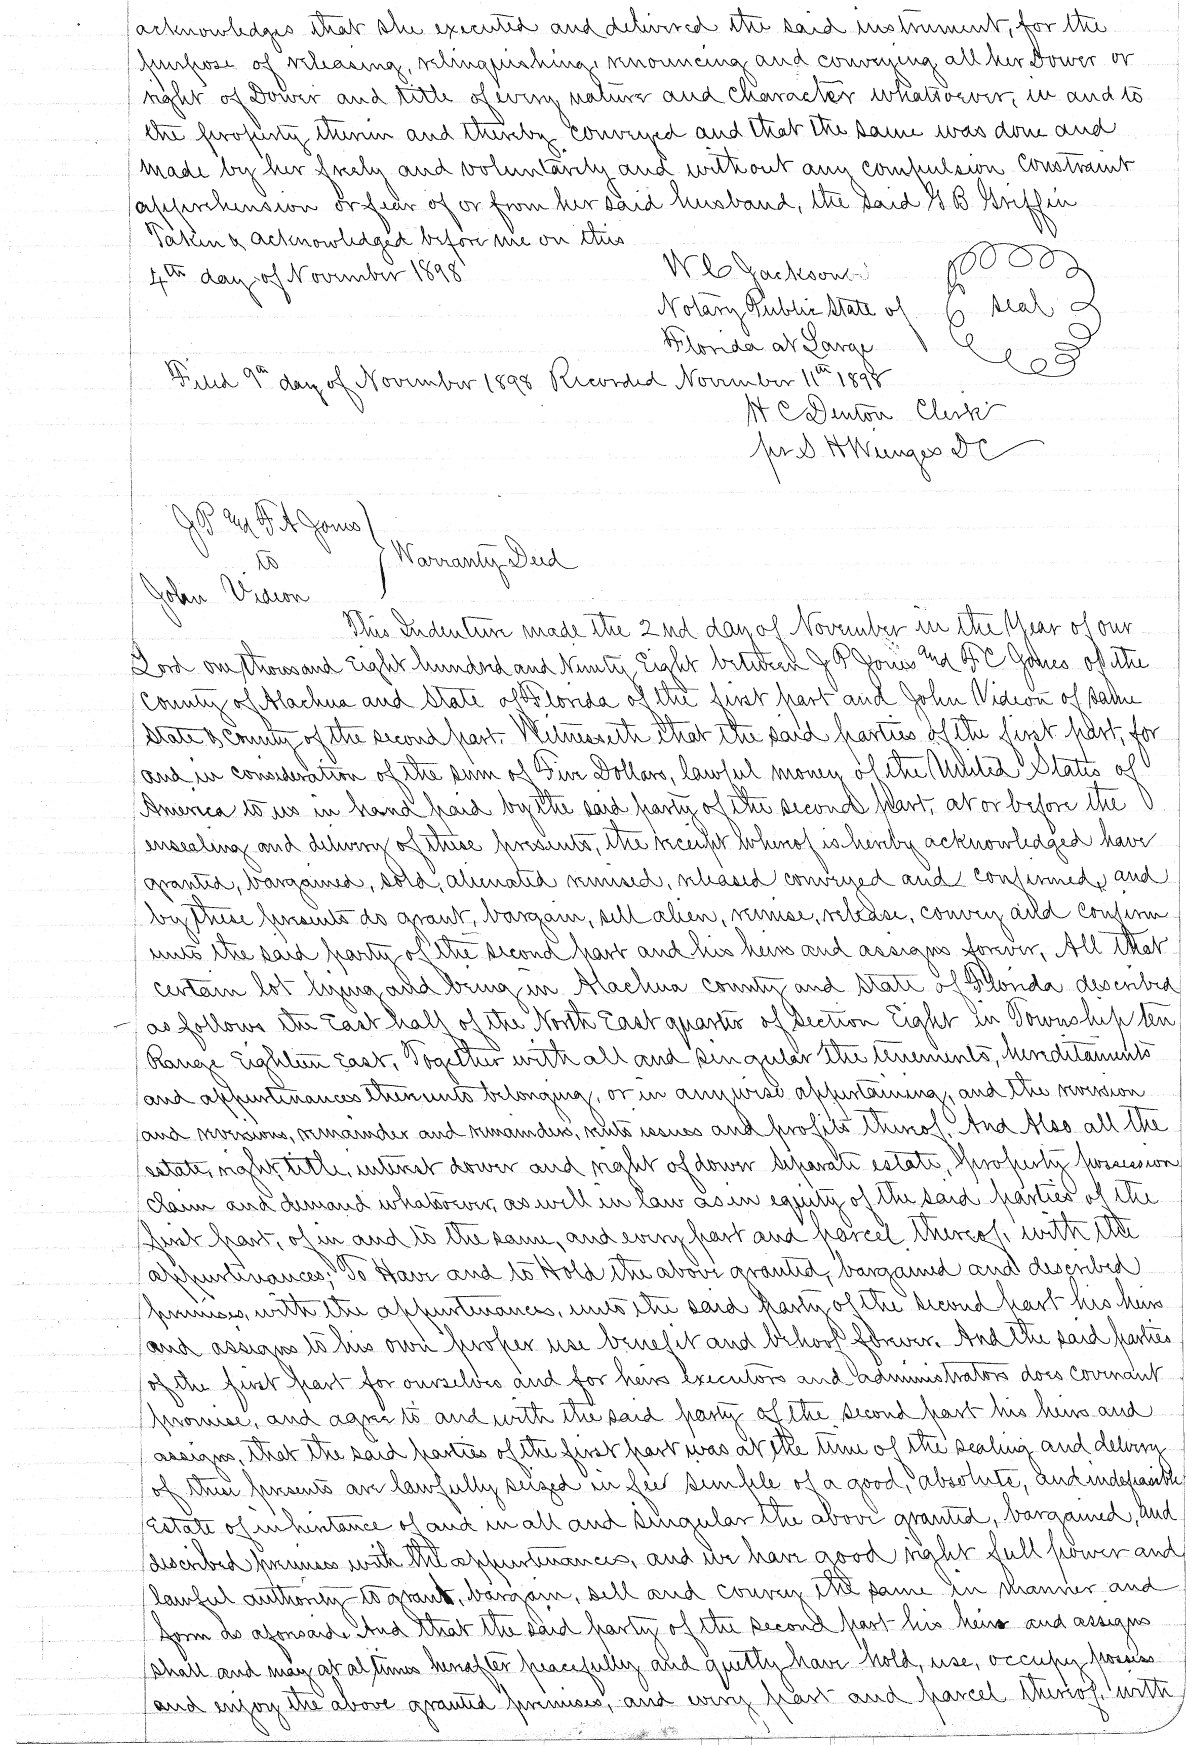 acknowledges that she executed and delivered the said instrument, for the
purpose of releasing, relinquishing, renouncing and conveying all her Dower or
right of Dower and title of every nature and character whatsoever, in and to
the property therein and thereby conveyed and that the same was done and
made by her freely and voluntarily and without any compulsion constraint
apprehension or fear of or from her said husband, the said G B Griffin
Taken & acknowledged before me on this
4th day of November 1898
W C Jackson
Notary Public State of
Florida at Large
seal
Filed 9th day of November 1898 Recorded November 11th 1898
H C Denton Clerk
pr S H Wienges D C
J P and F A Jones
to
John Videon
Warranty Deed
This Indenture made the 2nd day of November in the Year of our
Lord one thousand Eight hundred and Ninety Eight between J P Jones and F C Jones of the
County of Alachua and State of Florida of the first part and John Videon of same
State & County of the second part. Witnesseth that the said parties of the first part, for
and in consideration of the sum of Five Dollars, lawful money of the United States of
America to us in hand paid by the said party of the second part, at or before the
ensealing and delivery of these presents, the receipt whereof is hereby acknowledged have
granted, bargained, sold, alienated remised, released conveyed and confirmed, and
by these presents do grant, bargain, sell alien, remise, release, convey and confirm
unto the said party of the second part and his heirs and assigns forever, All that
certain lot lying and being in Alachua County and State of Florida described
as follows the East half of the North East quarter of Section Eight in Township ten
Range Eighteen East, Together with all and singular the tenements, hereditaments
and appurtenances thereunto belonging, or in anywise appertaining, and the reversion
and reversions, remainder and remainders, rents issues and profits thereof. And Also all the
estate, right, title, interest dower and right of dower separate estate, property possession
claim and demand whatsoever, as well in law as in equity of the said parties of the
first part, of in and to the same, and every part and parcel thereof, with the
appurtenances; To Have and to Hold the above granted, bargained and described
premises, with the appurtenances, unto the said party of the second part his heirs
and assigns to his own proper use benefit and behoof forever. And the said parties
of the first part for ourselves and for heirs executors and administrators does covenant
promise, and agree to and with the said party of the second part his heirs and
assigns, that the said parties of the first part was at the time of the sealing and delivery
of these presents are lawfully seized in fee simple of a good, absolute, and indefeasible
Estate of inheritance of and in all and singular the above granted, bargained, and
described premises with the appurtenances, and we have good right full power and
lawful authority to grant, bargain, sell and convey the same in manner and
form as aforesaid. And that the said party of the second part his heirs and assigns
shall and may at al times hereafter peacefully and quietly have hold, use, occupy possess
and enjoy the above granted premises, and every part and parcel thereof, with